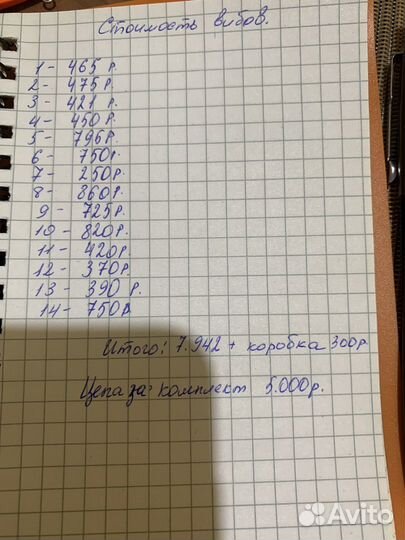 Стоимость вибов.
1 - 465 р.
2 - 475 р.
3 - 421 р.
4 - 450 р.
5 - 796 р.
6 - 750 р.
7 - 250 р.
8 - 860 р.
9 - 725 р.
10 - 820 р.
11 - 420 р.
12 - 370 р.
13 - 390 р.
14 - 750 р
Итого: 7.942 + коробка 300 р
Цена за: комплект 5.000 р.
Avito